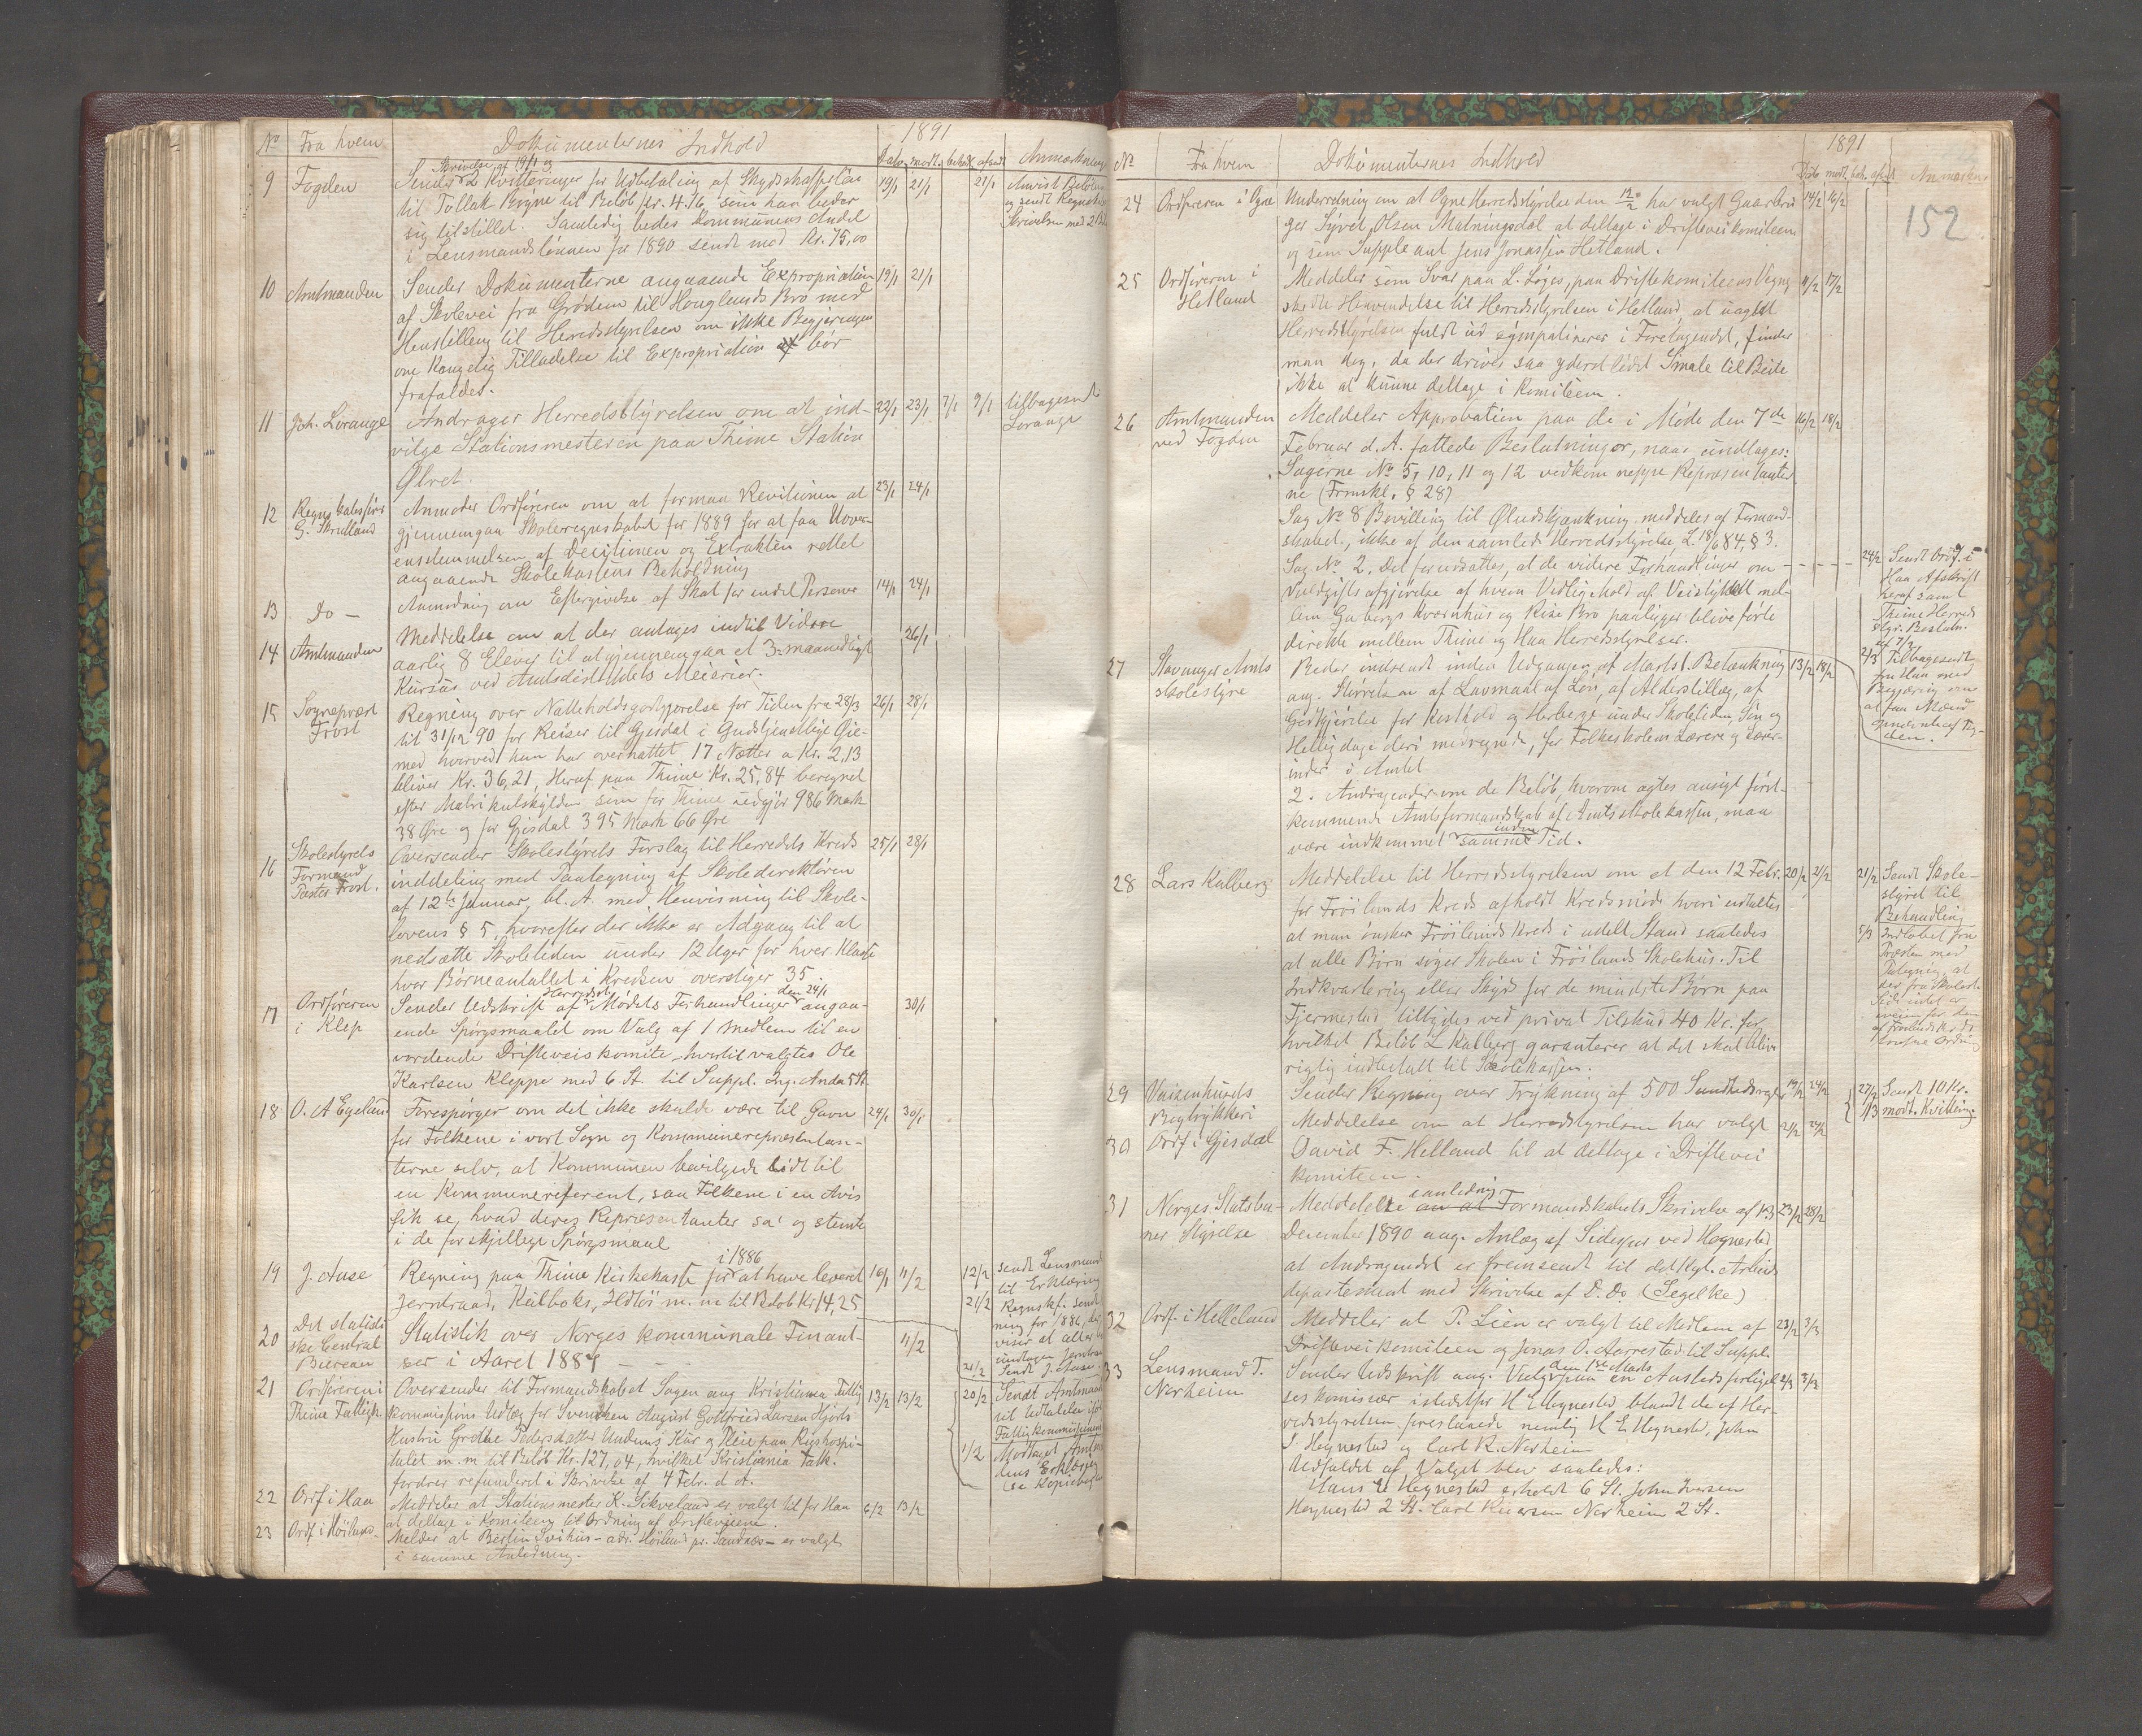 1891
No Fra hvem Dokumenternes Indhold Dato modt. behdl. afsdt Anmærkning
9 Fogden Sender Skrivelse af 19/1 og 2 Kvitteringer for Udbetaling af Skydsskafferløn 19/1 21/1 21/1 Anvist Beløbet
til Tollak Bryne til Beløb Kr. 4.16 som han beder og sendt
sig tilstillet. Samtidig bedes Kommunens Andel Skrivelsen med 2
i Lensmandslønnen for 1890 sendt med Kr. 75,00
10 Amtmanden Sender Dokumenterne angaaende Expropriation 19/1 21/1
af Skolevei fra Grødem til Hauglands Bro med
Henstilling til Herredsstyrelsen om ikke Begjæringen
om Kongelig Tilladelse til Expropriation bør
frafaldes.
11 Joh. Lorange Andrager Herredsstyrelsen om at ind- 22/1 23/1 7/1 9/1 tilbagesendt
vilge Stationsmesteren paa Thime Station Lorange
Ølret.
12 Regnskabsfører Anmoder Ordføreren om at formaa Revisionen at 23/1 24/1
G. Skrulland gjennemgaa Skoleregnskabet for 1889 for at faa Uover-
enstemmelsen af Decisionen og Extrakten rettet
angaaende Skolekassens Beholdning
13 Do — Anmodning om Eftergivelse af Skat for endel Personer 14/1 24/1
14 Amtmanden Meddelelse om at der antages indtil Videre 26/1
aarlig 8 Elever til at gjennemgaa et 3-maanedligt
Kursus ved Amtsdistriktets Meierier.
15 Sognepræst Regning over Natteholdsgodtgjørelse for Tiden fra 28/3 26/1 28/1
Frost til 31/12 90 for Reiser til Gjesdal i Gudstjenstlige Øie-
med hvorved han har overnattet 17 Nætter a Kr. 2,13
bliver Kr. 36,21, Heraf paa Thime Kr. 25,84 beregnet
efter Matrikulskylden som for Thime udgjør 986 Mark
38 Øre og for Gjesdal 395 Mark 66 Øre
16 Skolestyrets Oversender Skolestyrets Forslag til Herredets Kreds 25/1 28/1
Formand inddeling med Paategning af Skoledirektøren
Pastor Frost. af 12te Januar, d. A. med Henvisning til Skole-
lovens § 5, hvorefter der ikke er Adgang til at
nedsætte Skoletiden under 12 Uger for hver Klasse
hvor Børneantallet i Kredsen overstiger 35.
17 Ordføreren Sender Udskrift af Herredsst. Mødets Forhandlinger den 24/1 angaa- 30/1
i Klep ende Spørgsmaalet om Valg af 1 Medlem til en
vordende Drifteveiskomite hvortil valgtes Ole
Karlsen Kleppe med 6 St. til Suppl. Ing. Anda 5 St.
18 O. A Egeland Forespørger om det ikke skulde være til Gavn 24/1 30/1
for Folkene i vort Sogn og Kommunerepræsentan-
terne selv, at Kommunen bevilgede lidt til
en Kommunereferent, saa Folkene i en Avis
fik se, hvad deres Repræsentanter sa' og stemte
i de forskjellige Spørgsmaal
19 J. Aase Regning paa Thime Kirkekasse for i 1886 at have leveret 16/1 11/2 12/2 sendt Lensmand
Jerntraad, Kulboks, Ildtøi m. m til Beløb Kr 14,25 til Erklæring
21/2 Regnskf. sendt
20 Det statisti Statistik over Norges kommunale Finant- 11/2 ning for 1886, der
ske Central ser i Aaret 1887 — viser at alt er
Bureau undtagen Jerntraad
21/2 Sendt J. Aase.
21 Ordføreren i Oversender til Formandskabet Sagen ang Kristiania Fattig 13/2 13/2 20/2 Sendt Amtmand
Thime Fattigk. kommissions Udlæg for Svensken August Gottfried Larsen Hjorts til Udtalelse
Hustru Grethe Pedersdatter Undems Kur og Pleie paa Rigshospi- Fattigkommissionen
talet m. m til Beløb Kr. 127,04, hvilket Kristiania Fattk. 1/2 Modtaget Amtman
fordrer refunderet i Skrivelse af 4 Febr. d. A. dens Erklæring
22 Ordf i Haa Meddeler at Stationsmester K. Sikveland er valgt til for Haa 6/2 13/2 (se Kopibog
at deltage i Komiteen til Ordning af Drifteveiene
23 Ordf i Høiland Melder at Bertin Svihus – adr. Høiland pr. Sandnæs – er valgt
i samme Anledning.
1891
No Fra hvem Dokumenternes Indhold Dato modt. beh. afsdt Anmærkn.
152
24 Ordføreren i Ogne Underretning om at Ogne Herredsstyrelse den 12/2 har valgt Gaardbru 14/2 16/2
ger Sigvel Olsen Matningsdal at deltage i Drifteveikomiteen
og som Suppleant Jens Jonassen Hetland.
25 Ordføreren i Meddeler som Svar paa L. Løges, paa Driftekomiteens Vegne 11/2 17/2
Hetland skedte Henvendelse til Herredsstyrelsen i Hetland, at uagtet
Herredsstyrelsen fuldt ud sympatiserer i Foretagendet, finder
man dog, da der drives saa yderst lidet Smale til Beite
ikke at kunne deltage i Komiteen.
26 Amtmanden Meddeler Approbation paa de i Møde den 7de 16/2 18/2
ved Fogden Februar d. A. fattede Beslutninger, naar undtages:
Sagerne No 5, 10, 11 og 12 vedkom neppe Repræsentanter
ne (Frmskl. § 28)
Sag No 8 Bevilling til Øludskjænkning meddeles af Formand-
skabet, ikke af den samlede Herredsstyrelse L 18/6 84, § 3.
Sag No. 2. Det forudsættes, at de videre Forhandlinger om – – – – 24/2 Sendt Ordf. i
Voldgiftsafgjørelse af hvem Vedligehold af Veistykket mel- Haa Afskrift
lem Gabergs Kværnhus og Rise Bro paaligger blive førte heraf samt
direkte mellem Thime og Haa Herredsstyrelser. Thime Herreds
stgr. Beslutn.
af 7/2
27 Stavanger Amts Beder indsendt inden Udgangen af Marts 1. Betænkning 13/2 18/2 2/3 Tilbagesendt
skolestyre ang. Størrelsen af Lavmaal af Løn, af Alderstillæg, af fra Haa med
Godtgjørelse for Kosthold og Herberge under Skoletiden, Søn og Begjæring om
Helligdage deri medregnede, for Folkeskolens Lærere og Lærer- at faa Mænd
inder i Amtet
2. Andragender om de Beløb, hvorom agtes ansøgt først-
kommende Amtsformandskab af Amtsskolekassen, maa
være indkommet inden samme Tid.
28 Lars Kalberg Meddelelse til Herredsstyrelsen om at den 12 Febr. 20/2 21/2 21/2 Sendt Skole-
for Frøilands Kreds afholdt Kredsmøde hvori udtaltes styret til
at man ønsker Frøilands Kreds i udelt Stand saaledes Behandling
at alle Børn søger Skolen i Frøilands Skolehus. Til 5/3 Indløbet fra
Indkvartering eller Skyds for de mindste Børn paa Præsten med
Fjermestad tilbydes ved privat Tilskud 40 Kr. for Paategning, at
hvilket Beløb L Kalberg garanterer at det skal blive
rigtig indbetalt til Skolekassen.
29 Vaisenhusets Sender Regning over Trykning af 500 Sundhedsregler 19/2 24/2 27/2 Sendt 10 Kr.
Bogtrykkeri 1/3 modt. Kvittering.
30 Ordf i Gjesdal Meddelelse om at Herredsstyrelsen har valgt 21/2 24/2
David F. Helland til at deltage i Driftevei
komiteen.
31 Norges Statsba- Meddelelse i anledning om at Formandskabets Skrivelse af 13 23/2 28/2
ners Styrelse December 1890 ang. Anlæg af Sidespor ved Hognestad
at Andragendet er fremsendt til det Kgl. Arbeids
departement med Skrivelse af D. Do (Segelke)
32 Ordf. i Helleland Meddeler at P. Lien er valgt til Medlem af 23/2 3/3
Drifteveikomiteen og Jonas O. Aarrestad til Suppl.
33 Lensmand T. Sender Udskrift ang. Valg den 1ste Marts paa en Austedsforligel 2/3 3/3
Norheim ses komisær istedetfor H E Hognestad blandt de af Her-
redsstyrelsen foreslaaede nemlig H E Hognestad, John
I Hognestad og Carl R. Norheim
Udfaldet af Valget blev saaledes:
Hans E Hognestad erholdt 6 St. John Iversen
Hognestad 2 St. Carl Reiersen Norheim 2 St.